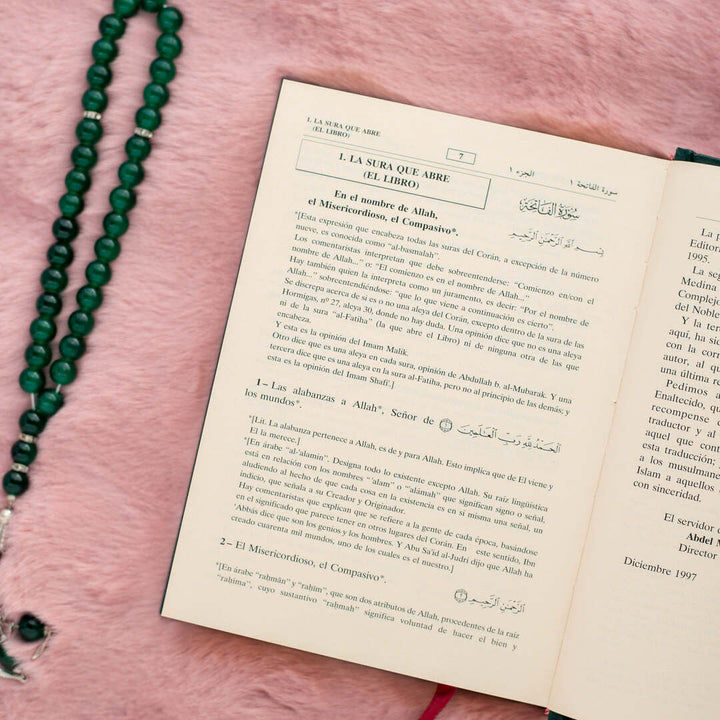 1. LA SURA QUE ABRE
(EL LIBRO)
7
الجزء ١
سورة الفاتحة ١
1. LA SURA QUE ABRE
(EL LIBRO)
سُورَةُ الْفَاتِحَةِ
En el nombre de Allah,
el Misericordioso, el Compasivo*.
بِسْمِ اللَّهِ الرَّحْمَٰنِ الرَّحِيمِ
*[Esta expresión que encabeza todas las suras del Corán, a excepción de la número
nueve, es conocida como “al-basmalah”.
Los comentaristas interpretan que debe sobreentenderse: “Comienzo en/con el
nombre de Allah...” o: “El comienzo es en el nombre de Allah...”
Hay también quien la interpreta como un juramento, es decir: “Por el nombre de
Allah...” sobreentendiéndose: “que lo que viene a continuación es cierto”.
Se discrepa acerca de si es o no una aleya del Corán, excepto dentro de la sura de las
Hormigas, nº 27, aleya 30, donde no hay duda. Una opinión dice que no es una aleya
ni de la sura “al-Fatiha” (la que abre el Libro) ni de ninguna otra de las que
encabeza.
Y esta es la opinión del Imam Malik.
Otro dice que es una aleya en cada sura, opinión de Abdullah b. al-Mubarak. Y una
tercera dice que es una aleya en la sura al-Fatiha, pero no al principio de las demás; y
esta es la opinión del Imam Shafi'.]
1 – Las alabanzas a Allah*, Señor de
los mundos*.
الْحَمْدُ لِلَّهِ رَبِّ الْعَالَمِينَ
*[Lit. La alabanza pertenece a Allah, es de y para Allah. Esto implica que de Él viene y
Él la merece.]
*[En árabe “al-'alamin”. Designa todo lo existente excepto Allah. Su raíz lingüística
está en relación con los nombres “'alam” o “'alamah” que significan signo o señal,
aludiendo al hecho de que cada cosa en la existencia es en sí misma una señal, un
indicio, que señala a su Creador y Originador.
Hay comentaristas que explican que se refiere a la gente de cada época, basándose
en el significado que parece tener en otros lugares del Corán. En este sentido, Ibn
'Abbás dice que son los genios y los hombres. Y Abu Sa'id al-Judri dijo que Allah ha
creado cuarenta mil mundos, uno de los cuales es el nuestro.]
2 – El Misericordioso, el Compasivo*.
الرَّحْمَٰنِ الرَّحِيمِ
*[En árabe “raḥmān” y “raḥīm”, que son dos atributos de Allah, procedentes de la raíz
“raḥima”, cuyo sustantivo “raḥmah” significa voluntad de hacer el bien y
La p
Editora
1995.
La seg
Medina
Complejo
del Noble
Y la ter
aquí, ha sid
con la corr
autor, al qu
una última r
Pedimos a
Enaltecido, qu
recompense
traductor y al
aquel que cont
esta traducción;
a los musulmane
Islam a aquellos
con sinceridad.
El servidor d
Abdel
Director
Diciembre 1997